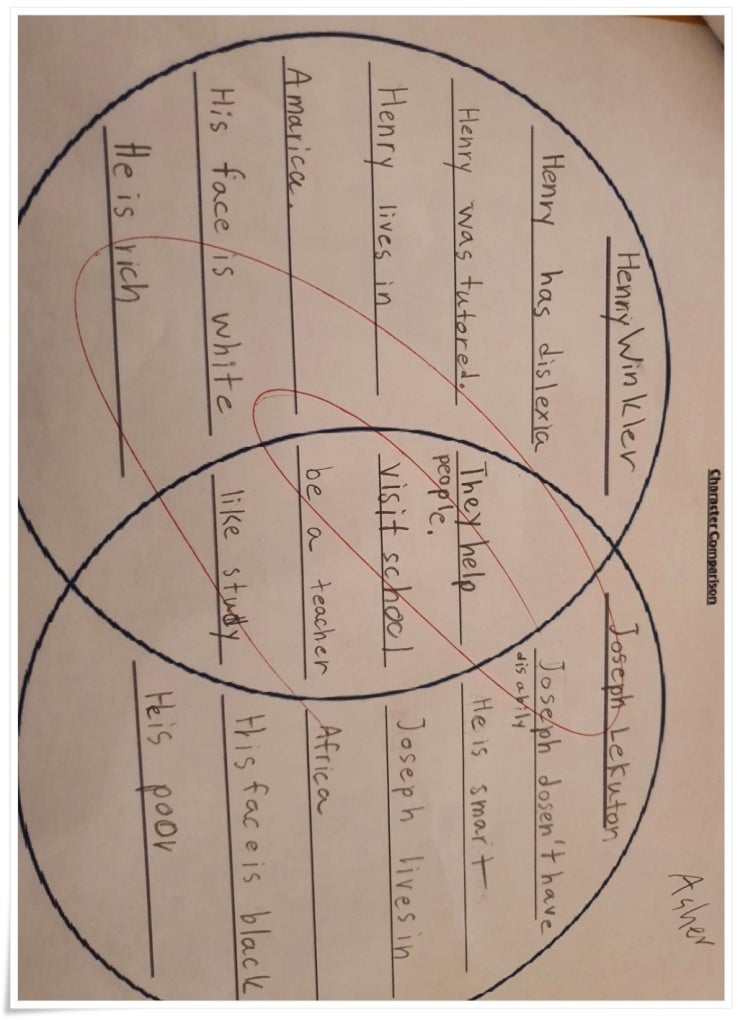 Character Comparison
Asher
Henry Winkler
Henry has dislexia
Henry was tutored.
Henry lives in
Amarica.
His face is white
He is rich
They help
people.
visit school
be a teacher
like study
Joseph Lekuton
Joseph dosen't have
disabily
He is smart
Joseph lives in
Africa
His face is black
He is poor